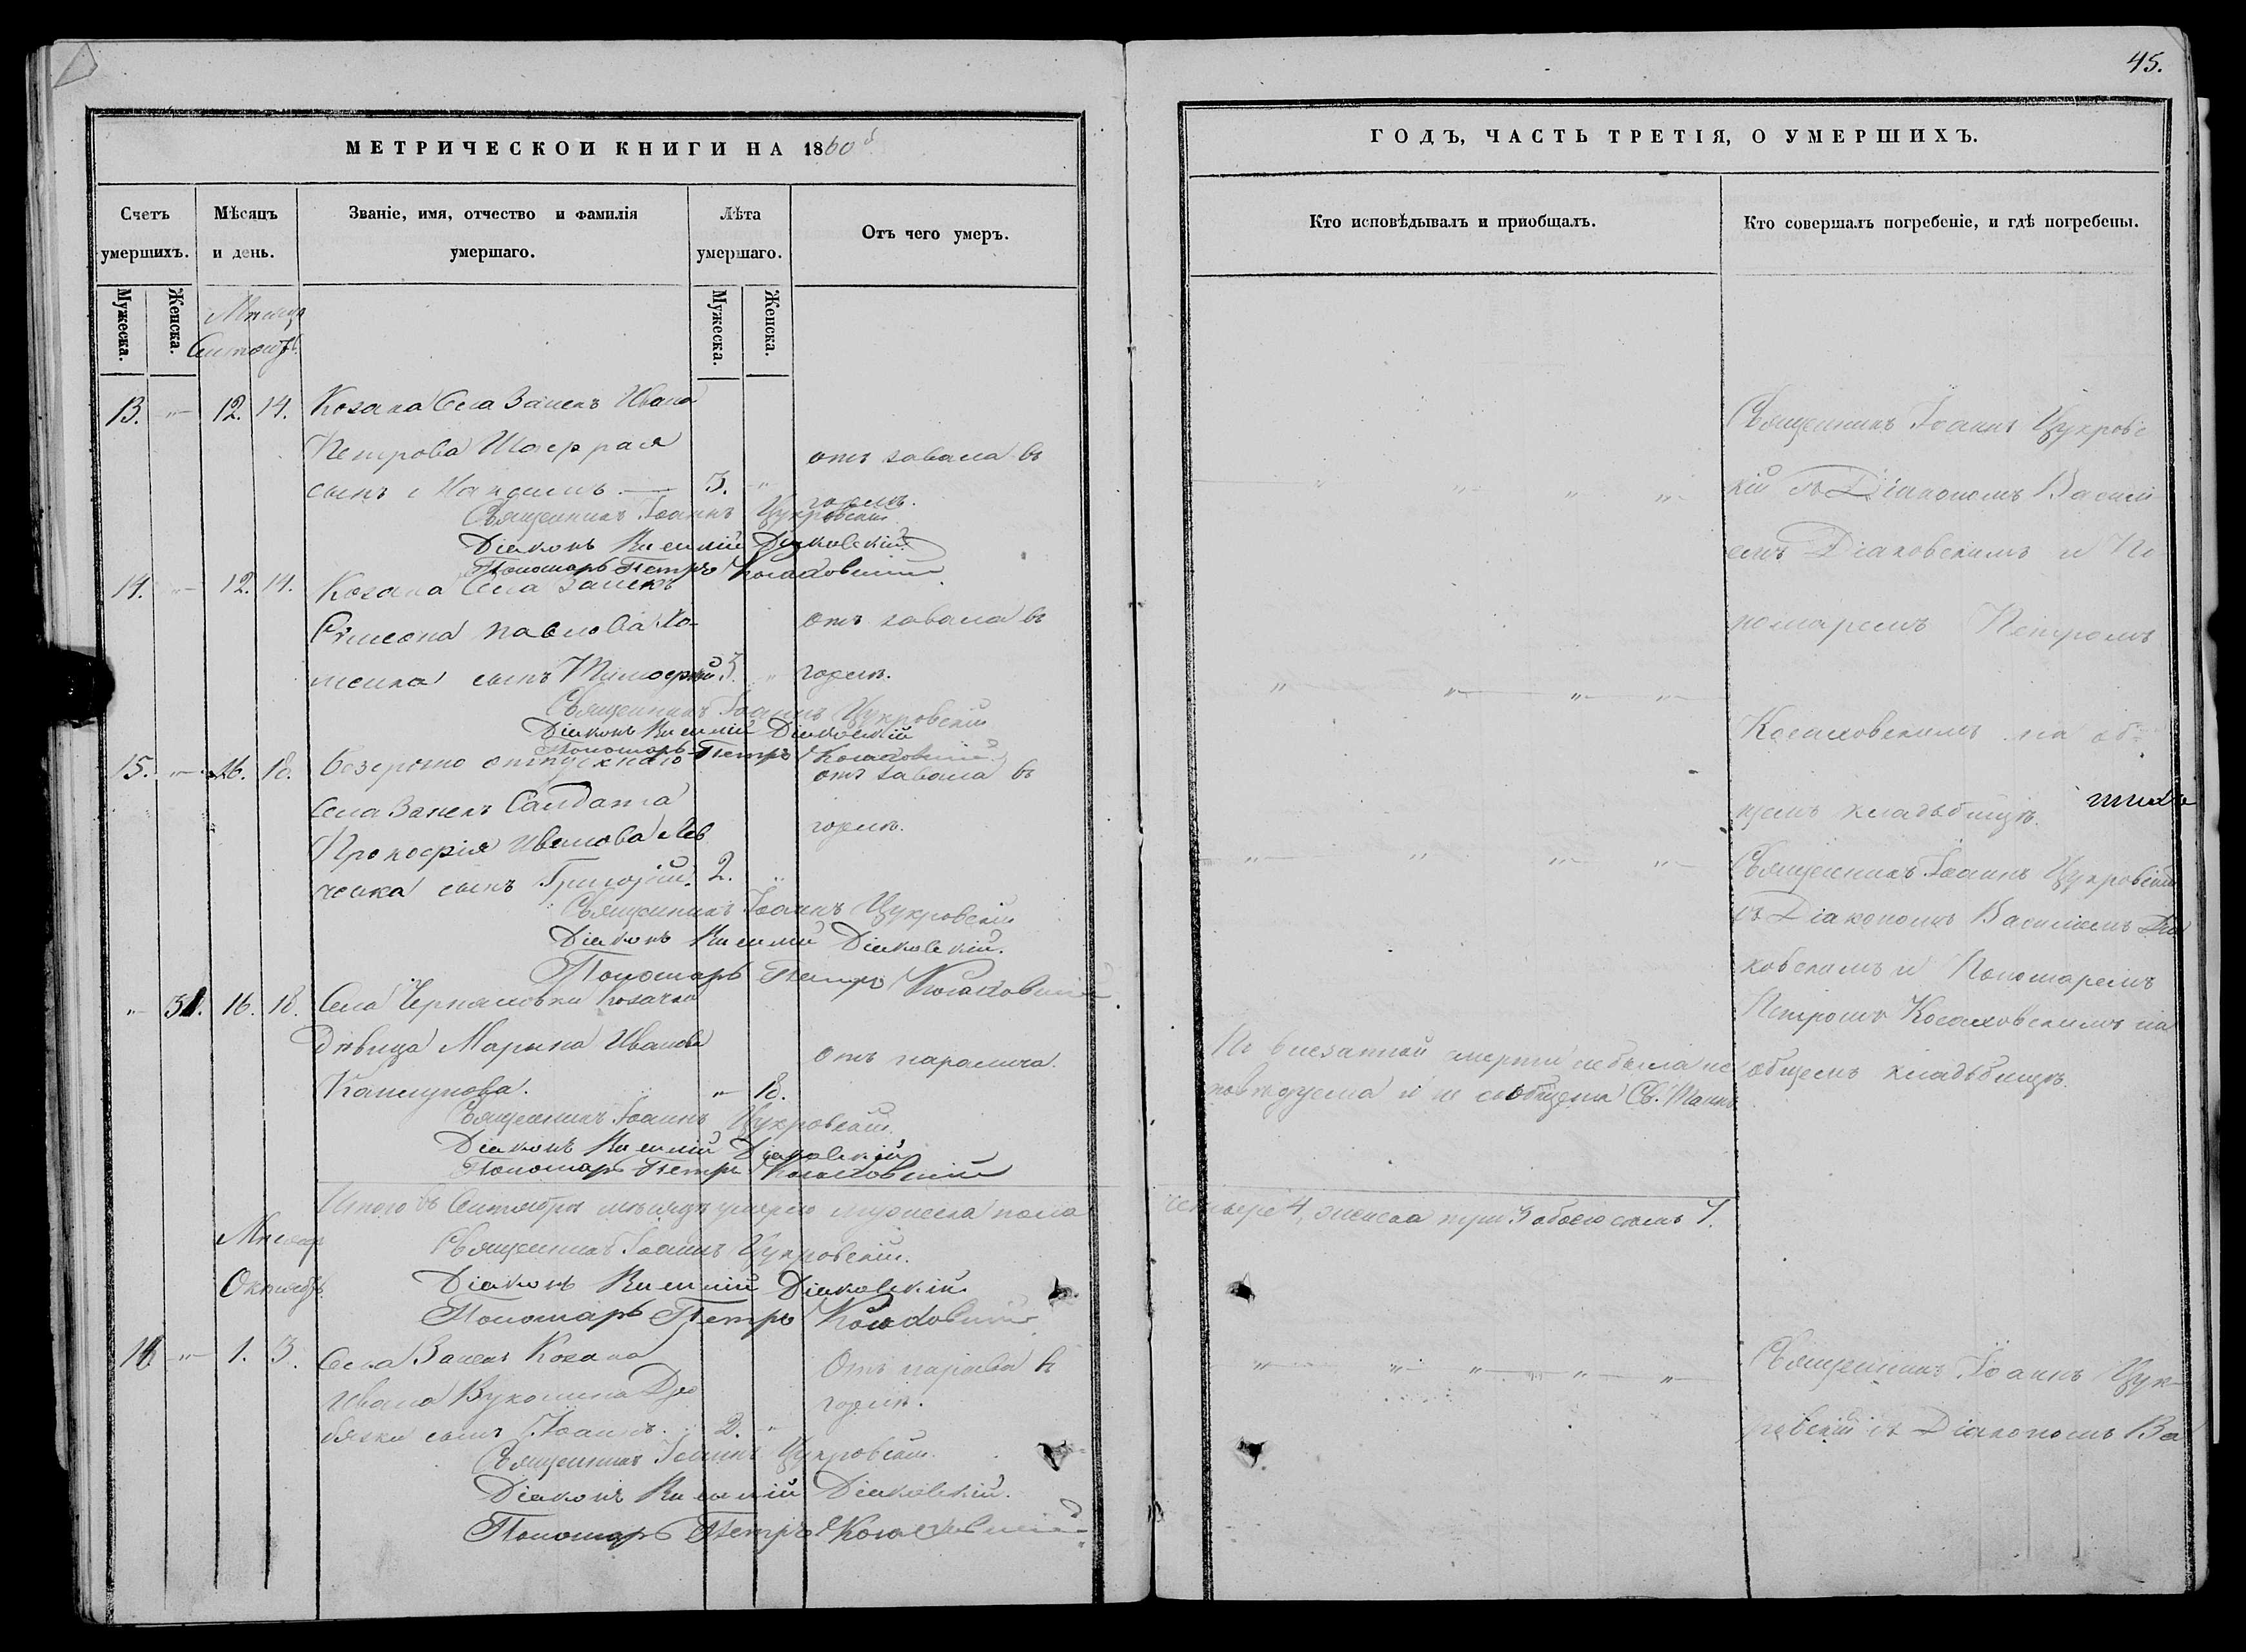 45.
МЕТРИЧЕСКОЙ КНИГИ НА 1860й
ГОДЪ, ЧАСТЬ ТРЕТІЯ, О УМЕРШИХЪ.
Счетъ умершихъ.
Мѣсяцъ и день.
Званіе, имя, отчество и фамилія умершаго.
Лѣта умершаго.
Отъ чего умеръ.
Кто исповѣдывалъ и приобщалъ.
Кто совершалъ погребеніе, и гдѣ погребены.
Мужеска.
Женска.
Мужеска.
Женска.
Мѣсяцъ
Сентябрь
13. „ 12. 14. Козака Села Ивана
Петрова
сынъ 5. „ отъ завала въ
горлѣ.
Священникъ Іоаннъ Цукровскій
Діаконъ Василій Діаковскій
Пономарь Петръ
14. „ 12. 14. Козака Села
Симеона Павлова Хо-
менка сынъ Тимофей 5. „ отъ завала въ
горлѣ.
Священникъ Іоаннъ Цукровскій
Діаконъ Василій Діаковскій
Пономарь Петръ
15. „ 16. 18. безсрочно отпускнаго
Села Салдата
Прокофія Иванова Лев
ченка сынъ Григорій. 2. „ отъ завала въ
горлѣ.
Священникъ Іоаннъ Цукровскій
Діаконъ Василій Діаковскій.
Пономарь Петръ
„ 31. 16. 18. Села Черняховки Козачка
Дѣвица Марына Иванова
„ 18. отъ паралича.
Священникъ Іоаннъ Цукровскій.
Діаконъ Василій Діаковскій
Пономарь Петръ
По внезапной смерти небыла ис
повѣдуема и не сообщена Св. Таинъ
Итого въ Сентябрѣ мѣсяцѣ умерло мужеска пола
четыре 4, женска три 3 обоего семь 7.
Священникъ Іоаннъ Цукровскій.
Діаконъ Василій Діаковскій.
Пономарь Петръ
Мѣсяцъ
Октябрь
16 „ 1. 3. Села Козака
Ивана
сынъ Іоаннъ. 2. „ Отъ въ
горлѣ.
Священникъ Іоаннъ Цукровскій.
Діаконъ Василій Діаковскій.
Пономарь Петръ
Священникъ Іоаннъ Цукровс
кій съ Діакономъ Василі
емъ Діаковскимъ и По
номаремъ Петромъ
на об-
щемъ кладбищѣ.
Священникъ Іоаннъ Цукровскій
съ Діакономъ Василіемъ Діа
ковскимъ и Пономаремъ
Петромъ на
общемъ кладбищѣ.
Священникъ Іоаннъ Цук-
ровскій съ Діакономъ Ва